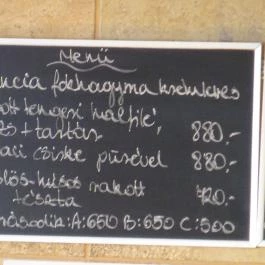 Menü
ncia fokhagyma krémleves
ott tengeri halfilé,
s + tartár 880.-
asi csirke pürével 880.-
lös-húsos rakott
tészta 720.-
második: A:650 B:650 C:500